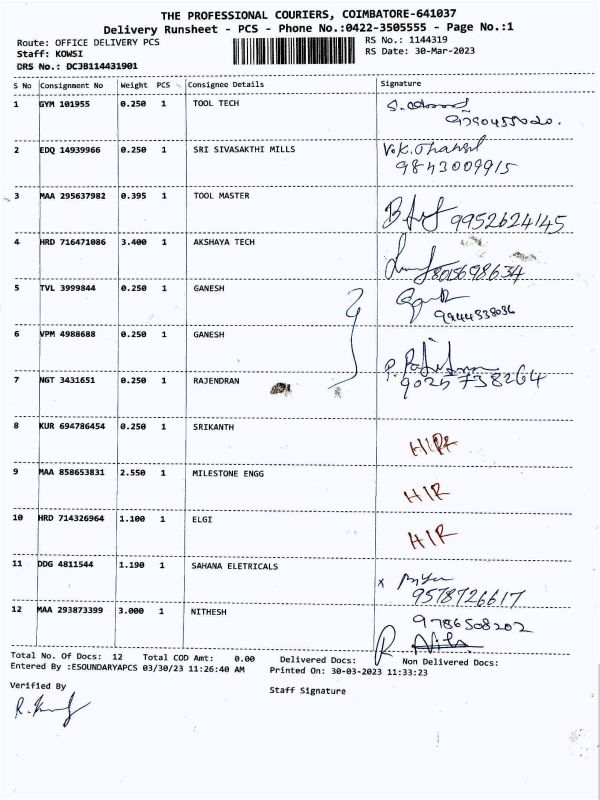 THE PROFESSIONAL COURIERS, COIMBATORE-641037
Delivery Runsheet - PCS - Phone No.:0422-3505555 - Page No.:1
Route: OFFICE DELIVERY PCS
RS No.: 1144319
Staff: KOWSI
RS Date: 30-Mar-2023
DRS No.: DCJB114431901
S No Consignment No Weight PCS Consignee Details Signature
1 GYM 101955 0.250 1 TOOL TECH
2 EDQ 14939966 0.250 1 SRI SIVASAKTHI MILLS
9843009915
3 MAA 295637982 0.395 1 TOOL MASTER
9952624145
4 HRD 716471086 3.400 1 AKSHAYA TECH
8015698634
5 TVL 3999844 0.250 1 GANESH
9944338036
6 VPM 4988688 0.250 1 GANESH
7 NGT 3431651 0.250 1 RAJENDRAN
9025738264
8 KUR 694786454 0.250 1 SRIKANTH
9 MAA 858653831 2.550 1 MILESTONE ENGG
HIR
10 HRD 714326964 1.100 1 ELGI
HIR
11 DDG 4811544 1.190 1 SAHANA ELETRICALS
9578726617
12 MAA 293873399 3.000 1 NITHESH
9786508202
Total No. Of Docs: 12 Total COD Amt: 0.00 Delivered Docs: Non Delivered Docs:
Entered By :ESOUNDARYAPCS 03/30/23 11:26:40 AM Printed On: 30-03-2023 11:33:23
Verified By
Staff Signature